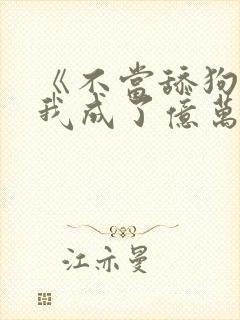 《不當舔狗
我成了億萬
江亦曼